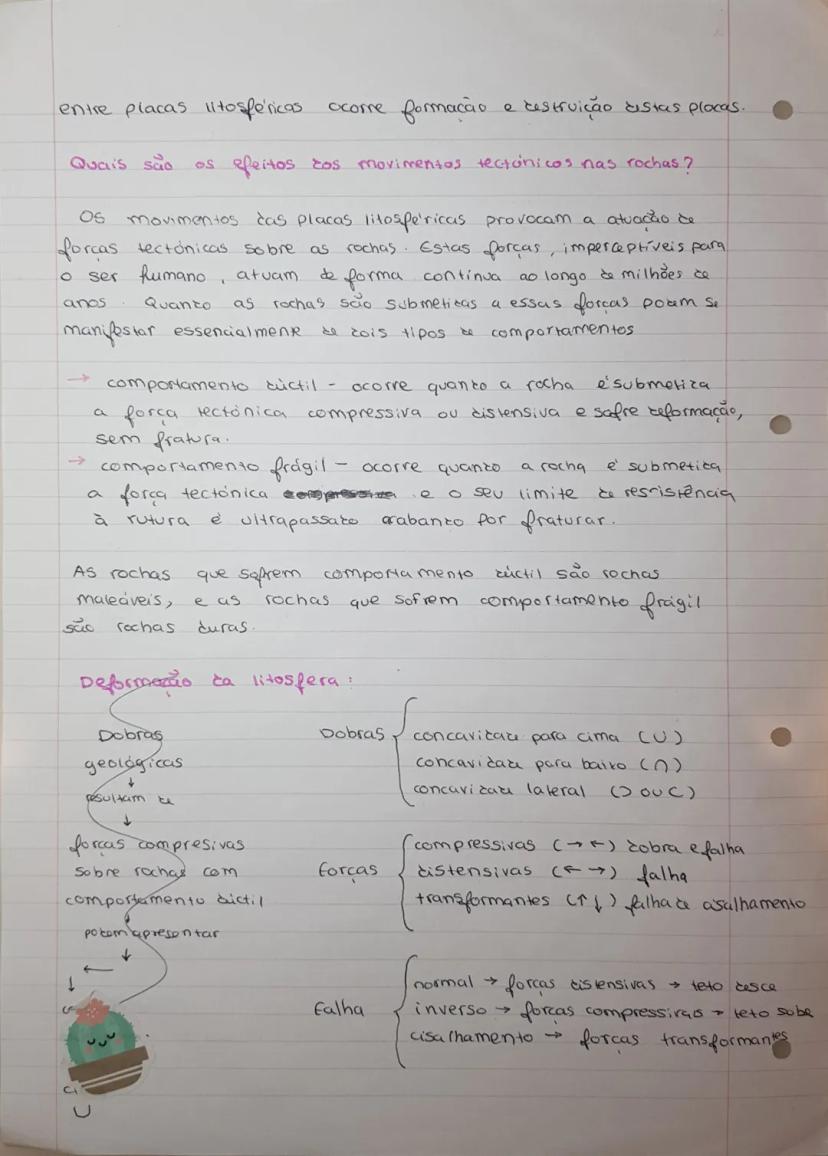 entre placas litosféricas ocorre formação e destruição destas placas.
Quais são os efeitos dos movimentos tectónicos nas rochas?
Os movimentos das placas litosféricas provocam a atuação de
forças tectónicas sobre as rochas. Estas forças, imperceptíveis para
o ser humano, atuam de forma continua ao longo de milhões de
anos. Quando as rochas são submetidas a essas forças podem se
manifestar essencialmente de dois tipos de comportamentos
→ comportamento dúctil - ocorre quando a rocha é submetida
a força tectónica compressiva ou distensiva e sofre deformação,
sem fratura.
→ comportamento frágil - ocorre quando a rocha é submetida
a força tectónica compressiva e o seu limite de resristência
à rutura é ultrapassado acabando por fraturar.
As rochas que sofrem comportamento dúctil são rochas
maleáveis, e as rochas que sofrem comportamento frágil
são rochas duras.
Deformação da litosfera:
Dobras
geológicas
↓
resultam de
↓
forças compresivas
sobre rochas com
comportamento dúctil
↓
podem apresentar
↓
←
↓
U
Dobras { concavidade para cima (U)
concavidade para baixo (∩)
concavidade lateral (⊃ ou C)
Forças { compressivas (→ ←) dobra e falha
distensivas (← →) falha
transformantes (↑ ↓) falha de cisalhamento
Falha { normal → forças distensivas → teto desce
inverso → forças compressivas → teto sobe
cisalhamento → forças transformantes